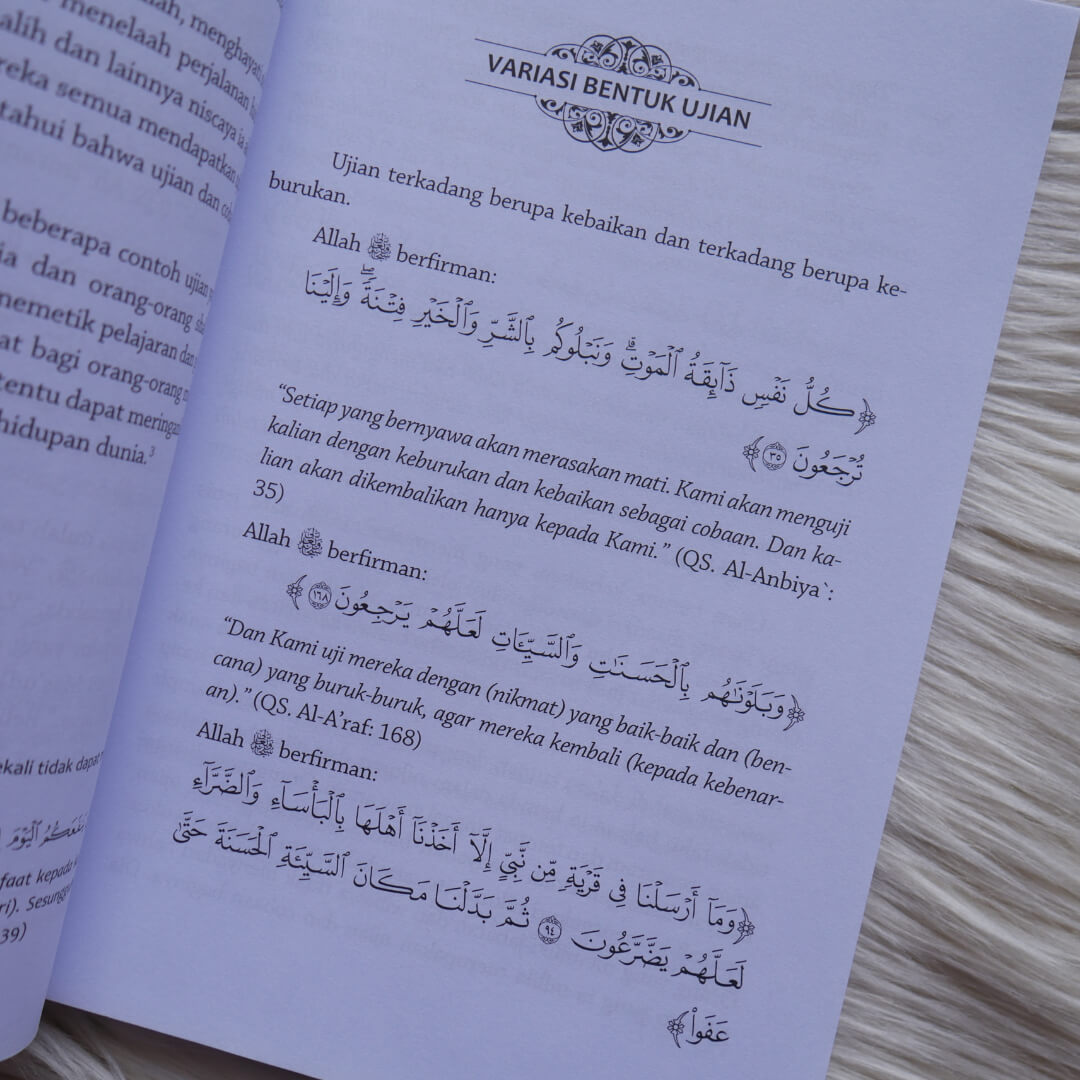 menelaah perjalanan
alih dan lainnya niscaya ia
reka semua mendapatkan
tahui bahwa ujian dan
beberapa contoh ujian
ia dan orang-orang
memetik pelajaran dan
at bagi orang-orang
tentu dapat meringan
hidupan dunia.³
ekali tidak dapat
faat kepada
ri). Sesungg
39)
VARIASI BENTUK UJIAN
Ujian terkadang berupa kebaikan dan terkadang berupa ke-
burukan.
Allah ﷻ berfirman:
﴿كُلُّ نَفْسٍ ذَآئِقَةُ ٱلْمَوْتِۗ وَنَبْلُوكُم بِٱلشَّرِّ وَٱلْخَيْرِ فِتْنَةًۖ وَإِلَيْنَا
تُرْجَعُونَ ٣٥﴾
“Setiap yang bernyawa akan merasakan mati. Kami akan menguji
kalian dengan keburukan dan kebaikan sebagai cobaan. Dan ka-
lian akan dikembalikan hanya kepada Kami.” (QS. Al-Anbiya`:
35)
Allah ﷻ berfirman:
﴿وَبَلَوْنَٰهُم بِٱلْحَسَنَٰتِ وَٱلسَّيِّـَٔاتِ لَعَلَّهُمْ يَرْجِعُونَ ١٦٨﴾
“Dan Kami uji mereka dengan (nikmat) yang baik-baik dan (ben-
cana) yang buruk-buruk, agar mereka kembali (kepada kebenar-
an).” (QS. Al-A’raf: 168)
Allah ﷻ berfirman:
﴿وَمَآ أَرْسَلْنَا فِى قَرْيَةٍ مِّن نَّبِىٍّ إِلَّآ أَخَذْنَآ أَهْلَهَا بِٱلْبَأْسَآءِ وَٱلضَّرَّآءِ
لَعَلَّهُمْ يَضَّرَّعُونَ ٩٤ ثُمَّ بَدَّلْنَا مَكَانَ ٱلسَّيِّئَةِ ٱلْحَسَنَةَ حَتَّىٰ
عَفَوا۟﴾